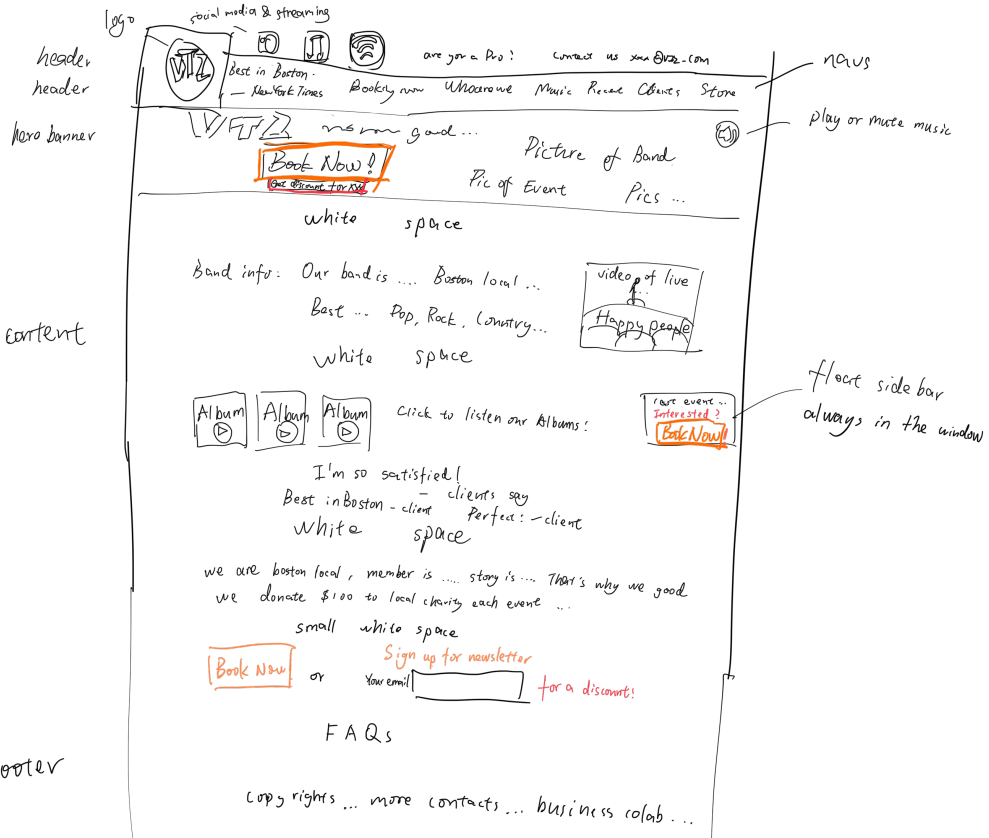 logo
social media & streaming
header
VTZ
are you a Pro?
contact us xxx@vzz.com
navs
header
Best in Boston.
— New York Times
Booking now
Whoarewe
Music
Recent
Clients
Store
hero banner
VTZ
good...
play or mute music
Book Now!
Get discount for
Picture of Band
Pic of Event
Pics ...
white space
Band info: Our band is .... Boston local ...
Best ... Pop, Rock, Country...
video of live
Happy people
content
white space
Album
Album
Album
Click to listen our Albums!
event ...
Interested?
Book Now!
float sidebar
always in the window
I'm so satisfied!
— clients say
Best in Boston - client
Perfect! - client
white space
we are boston local, member is ..... story is .... That's why we good
we donate $100 to local charity each event ...
small white space
Book Now
or
Sign up for newsletter
Your email
for a discount!
FAQs
ooter
copy rights ... more contacts ... business colab ...